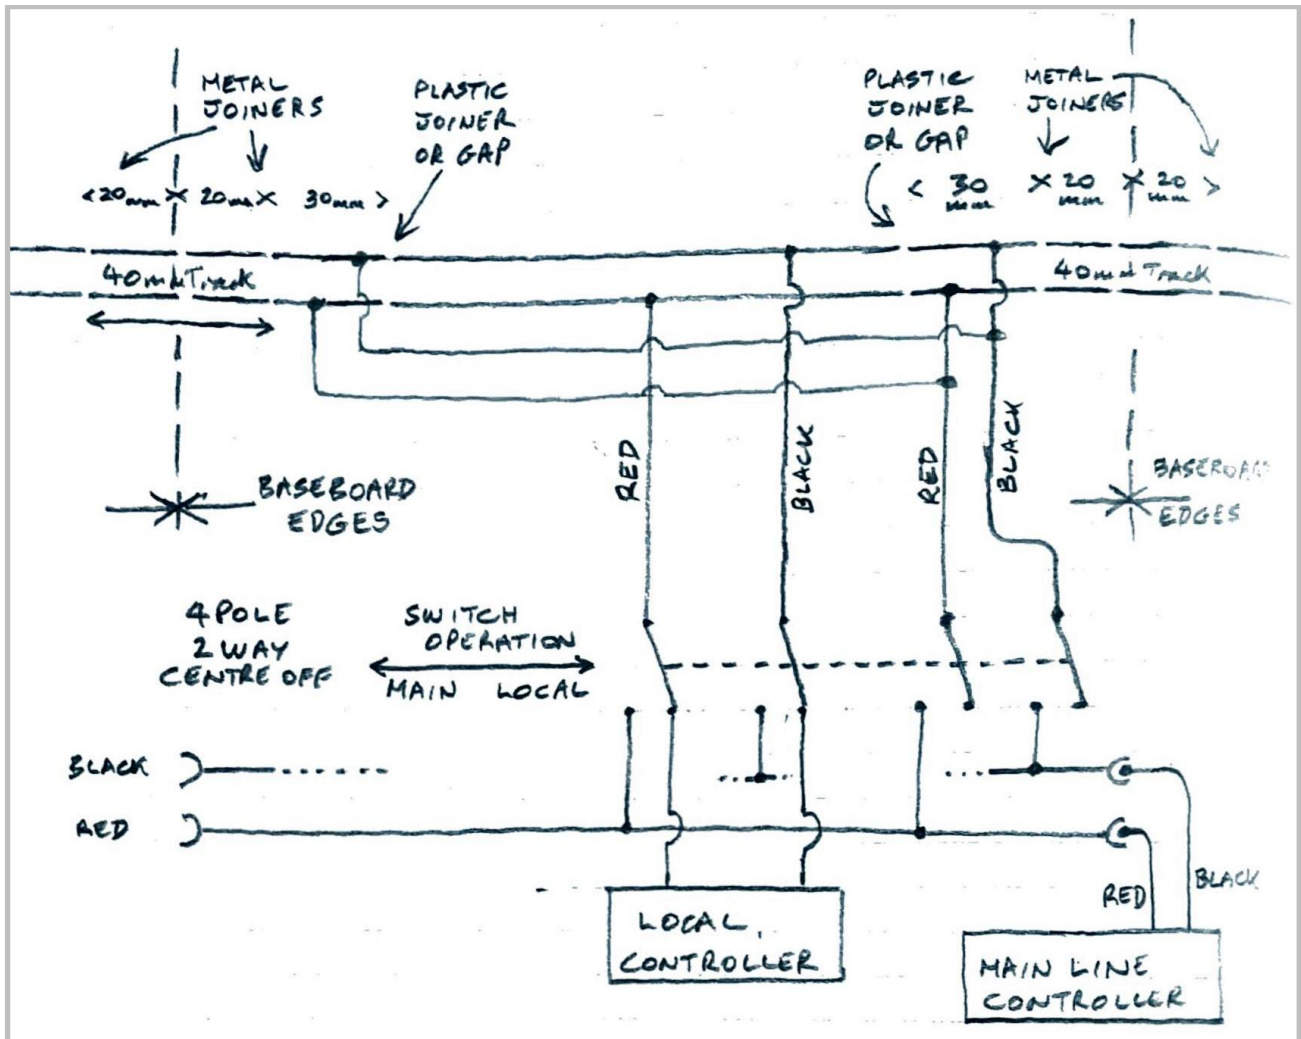 METAL
JOINERS
PLASTIC
JOINER
OR GAP
PLASTIC
JOINER
OR GAP
METAL
JOINERS
<20mm X 20mm X 30mm >
< 30 mm X 20 mm X 20 mm >
40mm Track
40mm Track
RED
BLACK
RED
BLACK
BASEBOARD
EDGES
BASEBOARD
EDGES
4 POLE
2 WAY
CENTRE OFF
SWITCH
OPERATION
MAIN LOCAL
BLACK
RED
RED
BLACK
LOCAL
CONTROLLER
MAIN LINE
CONTROLLER